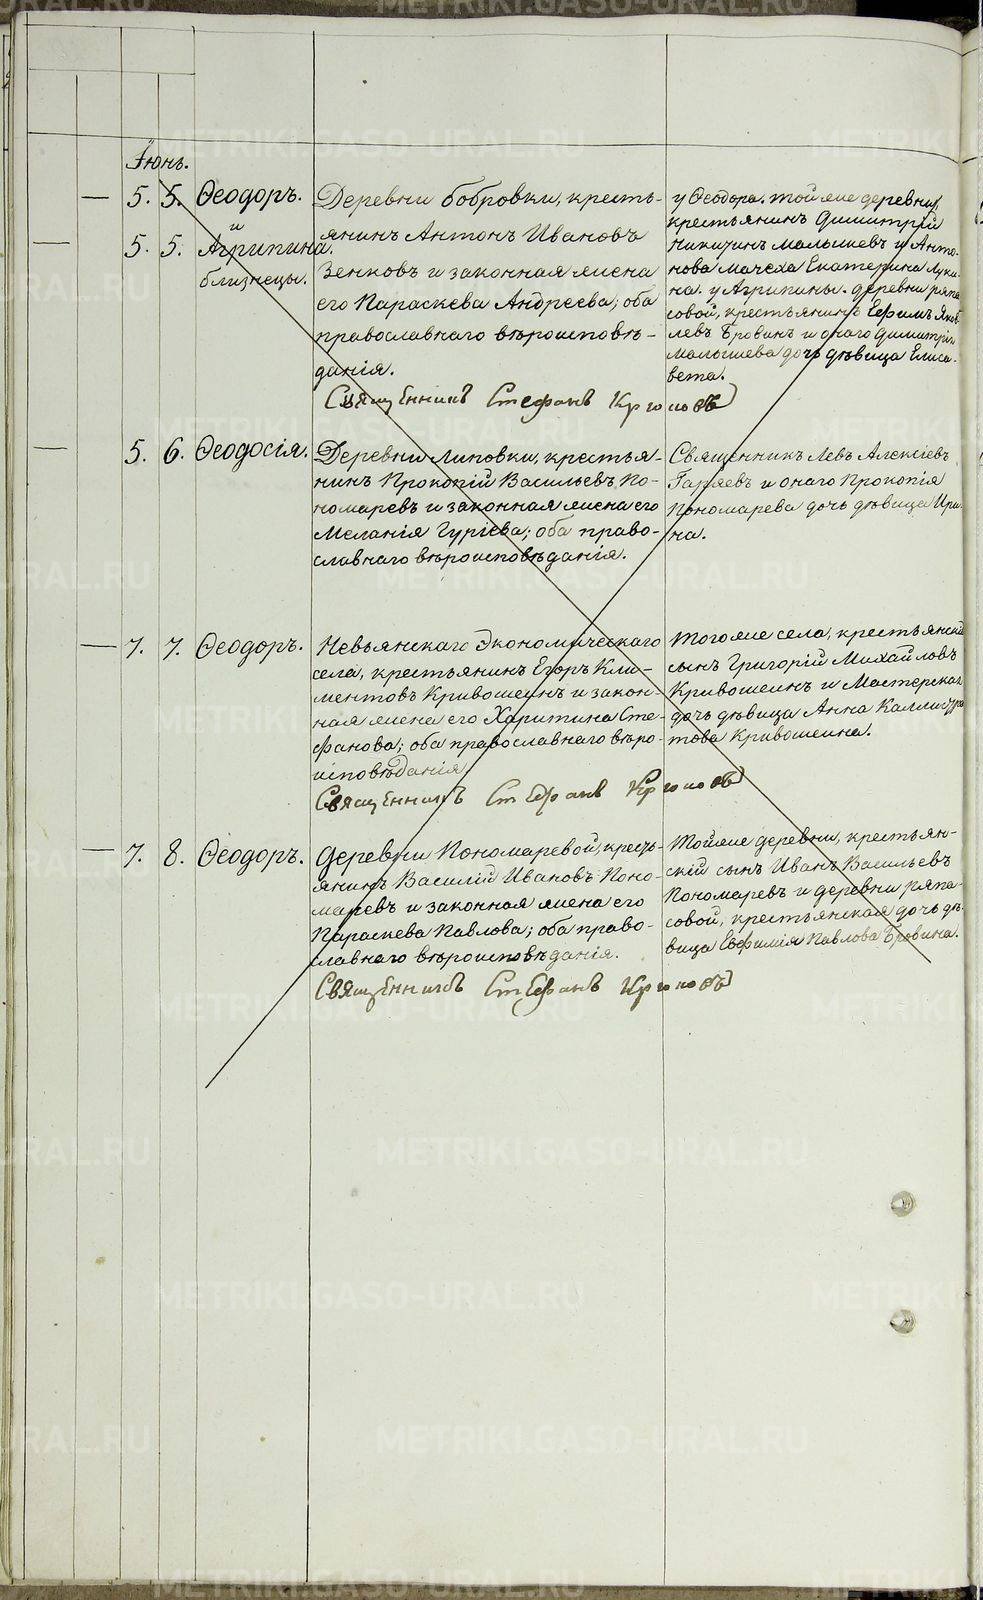 Іюнь.
— 5. 5. Ѳеодоръ.
и
— 5. 5. Агрипина.
близнецы.
Деревни Бобровки, кресть-
янинъ Антонъ Ивановъ
Зенковъ и законная жена
его Параскева Андреева; оба
православнаго вѣроисповѣ-
данія.
Священникъ Стефанъ
у Ѳеодора. той же деревни,
крестьянинъ Димитрій
Никитинъ Малышевъ и Анто-
нова мачеха Екатерина Луки-
на. у Агрипины. деревни ряпа
совой, крестьянинъ Ефимъ Яков
левъ Бровинъ и онаго Димитрія
Малышева дочь дѣвица Елиса-
вета.
— 5. 6. Ѳеодосія.
Деревни Липовки, крестья-
нинъ Прокопій Васильевъ По-
номаревъ и законная жена его
Меланія Гуріева; оба право-
славнаго вѣроисповѣданія.
Священникъ Левъ Алексіевъ
Гаряевъ и онаго Прокопія
Пономарева дочь дѣвица Ири-
на.
— 7. 7. Ѳеодоръ.
Невьянскаго Экономическаго
села, крестьянинъ Егоръ Кли-
ментовъ Кривошеинъ и закон-
ная жена его Харитина Сте-
фанова; оба православнаго вѣро-
исповѣданія
Священникъ Стефанъ
Того же села, крестьянскій
сынъ Григорій Михайловъ
Кривошеинъ и Мастерская
дочь дѣвица Анна
това Кривошеина.
— 7. 8. Ѳеодоръ.
Деревни Пономаревой, кресть-
янинъ Василій Ивановъ Поно-
маревъ и законная жена его
Параскева Павлова; оба право-
славнаго вѣроисповѣданія.
Священникъ Стефанъ
Той же деревни, крестьян-
скій сынъ Иванъ Васильевъ
Пономаревъ и деревни ряпа-
совой, крестьянская дочь дѣ-
вица Евфимія Павлова Бровина.
METRIKI.GASO-URAL.RU